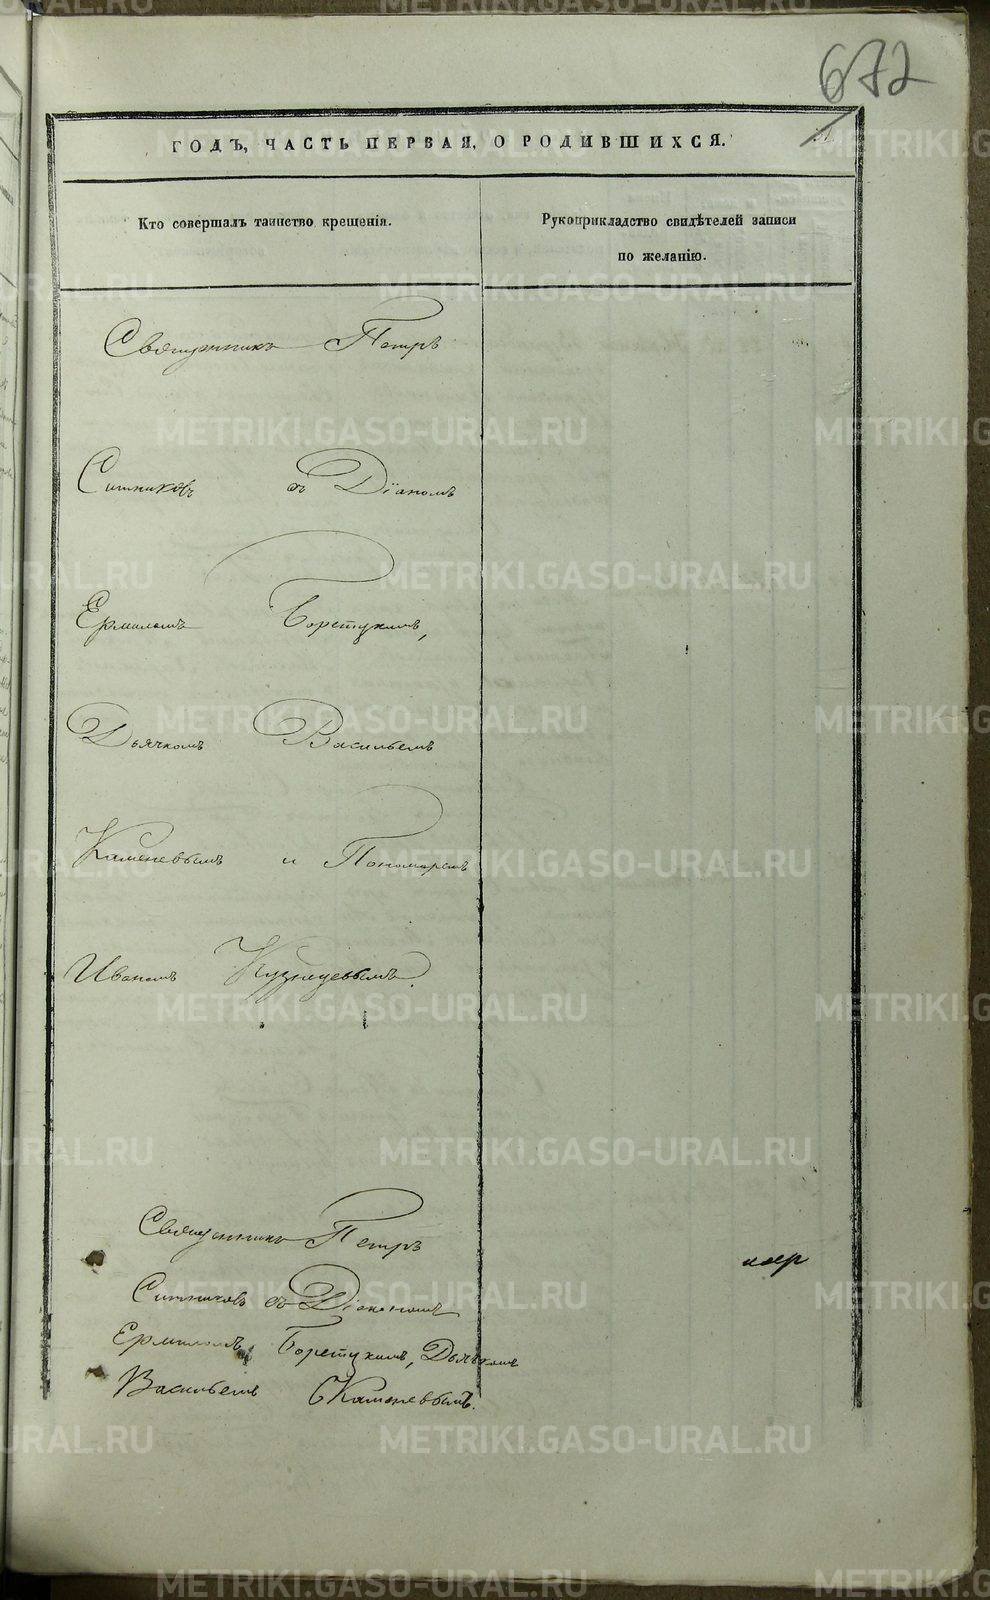 672
ГОДЪ, ЧАСТЬ ПЕРВАЯ, О РОДИВШИХСЯ.
Кто совершалъ таинство крещенія.
Рукоприкладство свидѣтелей записи
по желанію.
Священникъ Петръ
Ситниковъ съ Діаконом
Ермиломъ
Дьячкомъ Васильемъ
Каменевымъ и Пономаремъ
Иваномъ Кузнецовымъ.
Священникъ Петръ
Ситниковъ съ Діакономъ
Ермиломъ Дьячкомъ
Васильемъ Каменевымъ.
METRIKI.GASO-URAL.RU